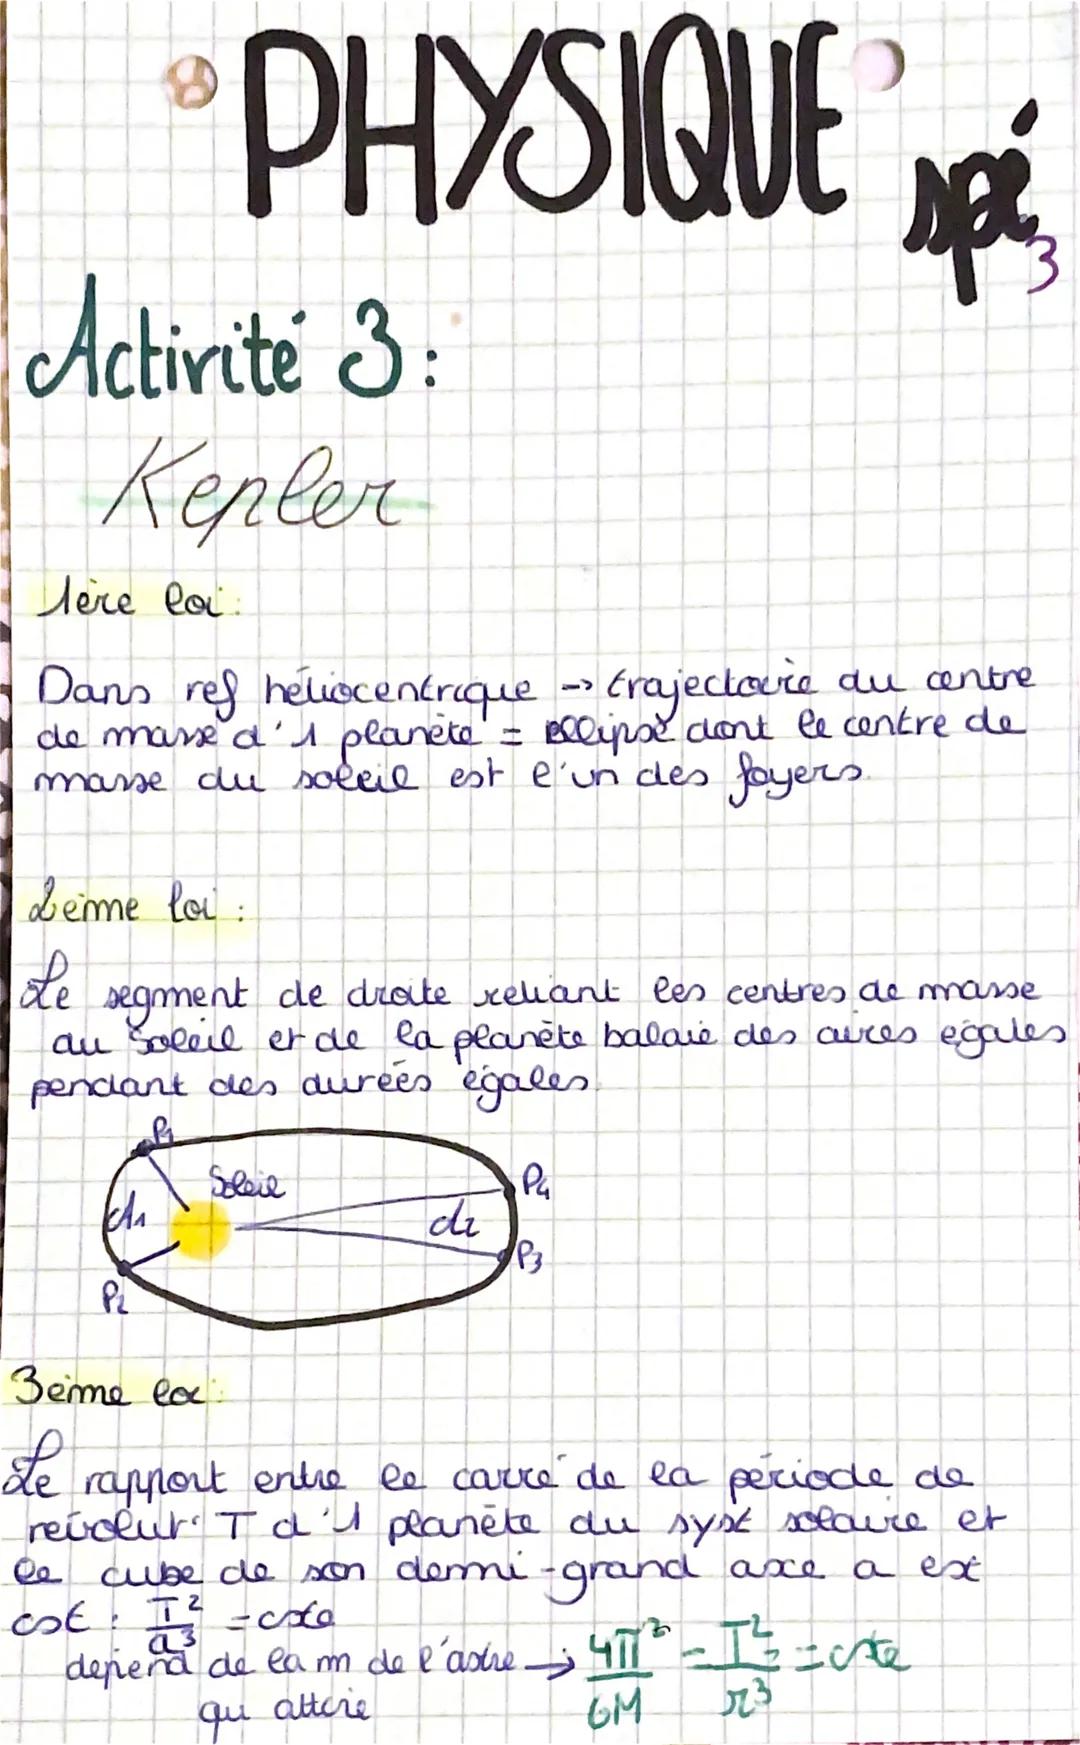 PHYSIQUE
spé
3
Activité 3 :
Kepler
1ère loi :
Dans ref héliocentrique → trajectoire du centre
de masse d'1 planète = ellipse dont le centre de
masse du soleil est l'un des foyers.
2eime loi :
Le segment de droite reliant les centres de masse
du Soleil et de la planète balaie des aires égales
pendant des durées égales.
P1
Soleil
P4
d1
d2
P3
P2
3eime loi :
Le rapport entre le carré de la période de
révolut° T d'1 planète du syst solaire et
le cube de son demi-grand axe a est
cst : T²/a³ = cste
dépend de la m de l'astre → 4π²/GM = T²/r³ = cste
qui attire